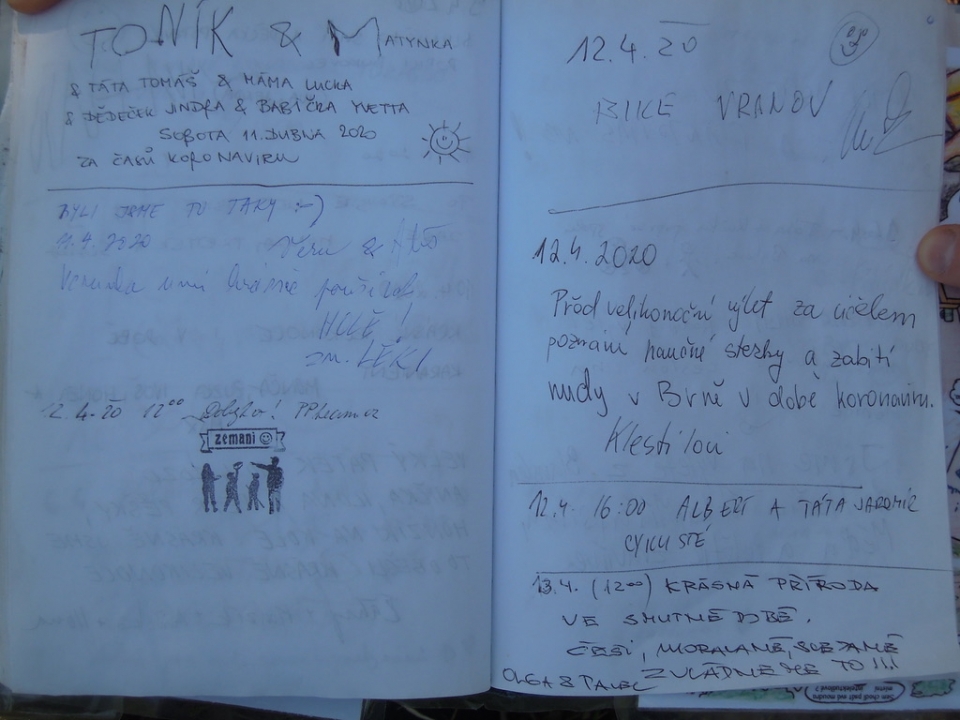 TONÍK & MATYNKA
& TÁTA TOMÁŠ & MÁMA LUCKA
& DĚDEČEK JINDRA & BABIČKA YVETTA
SOBOTA 11. DUBNA 2020
ZA ČASŮ KORONAVIRU
BYLI JSME TU TAKY :-)
11.4.2020 Věra &
12.4.20 12⁰⁰
zemani
12.4.20
BIKE VRANOV
12.4.2020
Před velikonoční výlet za účelem
poznání naučné stezky a zabití
nudy v Brně v době koronaviru.
Klestilovi
12.4. 16:00 ALBERT A TÁTA JAROMÍR
CYKLISTÉ
13.4. (12⁰⁰) KRÁSNÁ PŘÍRODA
VE SMUTNÉ DOBĚ.
ČEŠI, MORAVANÉ, SLEZANÉ
ZVLÁDNEME TO !!!
OLGA &